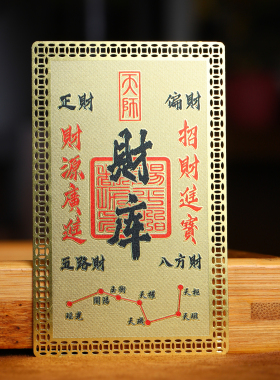 天師
正財
偏財
財庫
財源廣進
招財進寶
五路財
八方財
瑤光
開陽
玉衡
天權
天璣
天樞
天璇